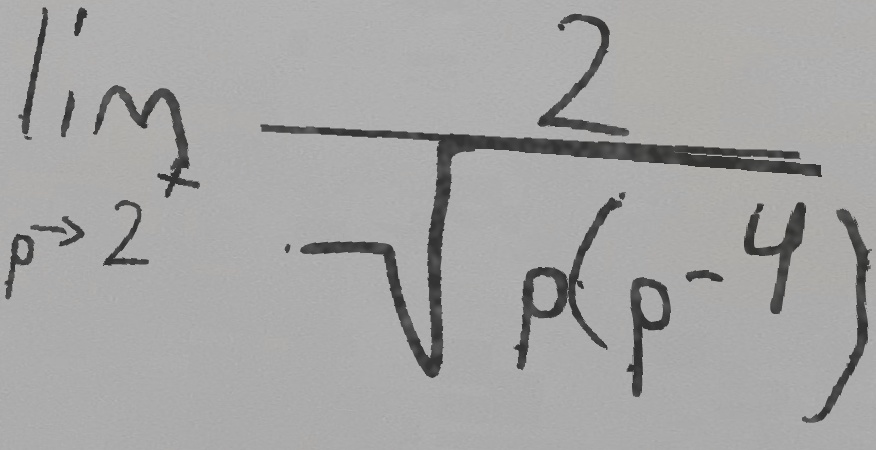 lim p→2⁺ 2/√p(p-4)